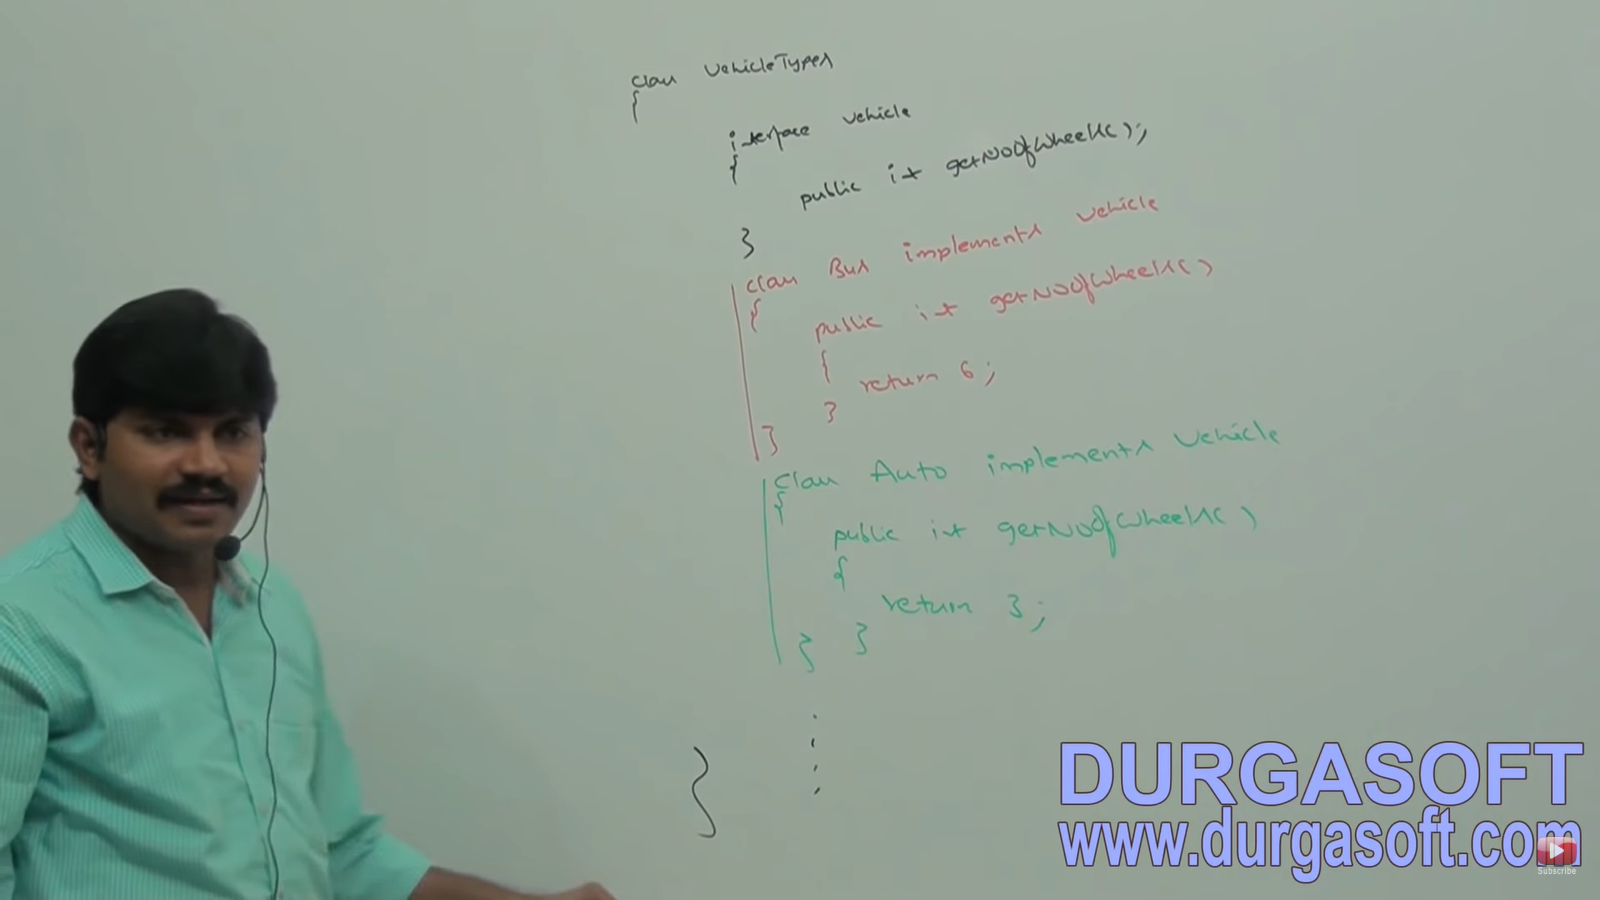 class VehicleTypes
{
interface Vehicle
{
public int getNoOfWheels();
}
class Bus implements Vehicle
{
public int getNoOfWheels()
{
return 6;
}
}
class Auto implements Vehicle
{
public int getNoOfWheels()
{
return 3;
} }
}
DURGASOFT
www.durgasoft.com
Subscribe